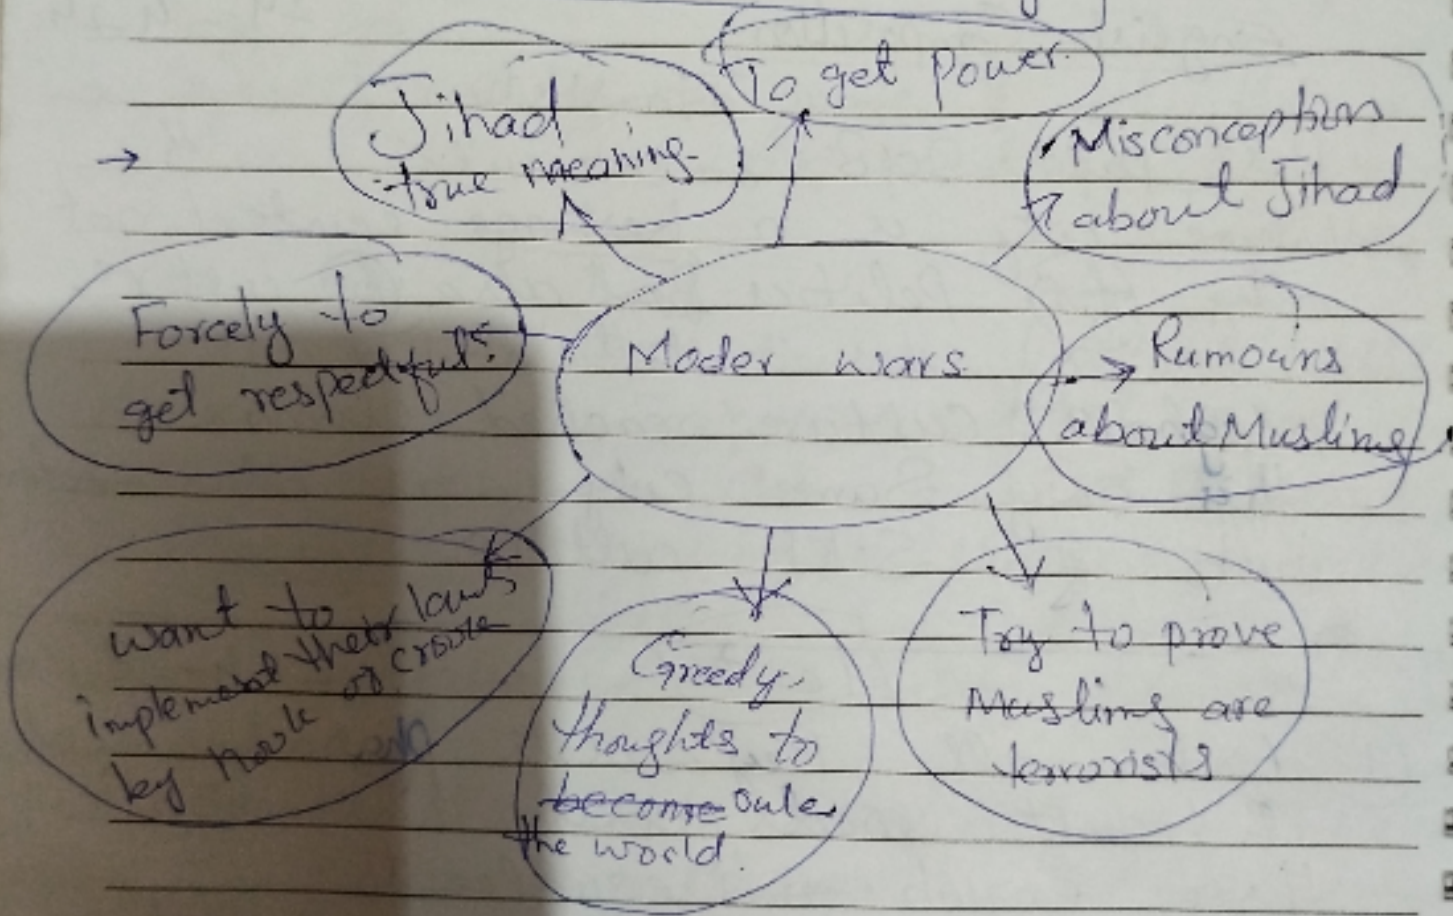 To get power.
Jihad
true meaning
Misconception
about Jihad
Forcely to
get respectful.
Moder wars
Rumours
about Muslims
want to
implement their laws
by hook or crook
Greedy
thoughts to
become rule
the world.
Try to prove
Muslims are
terrorists